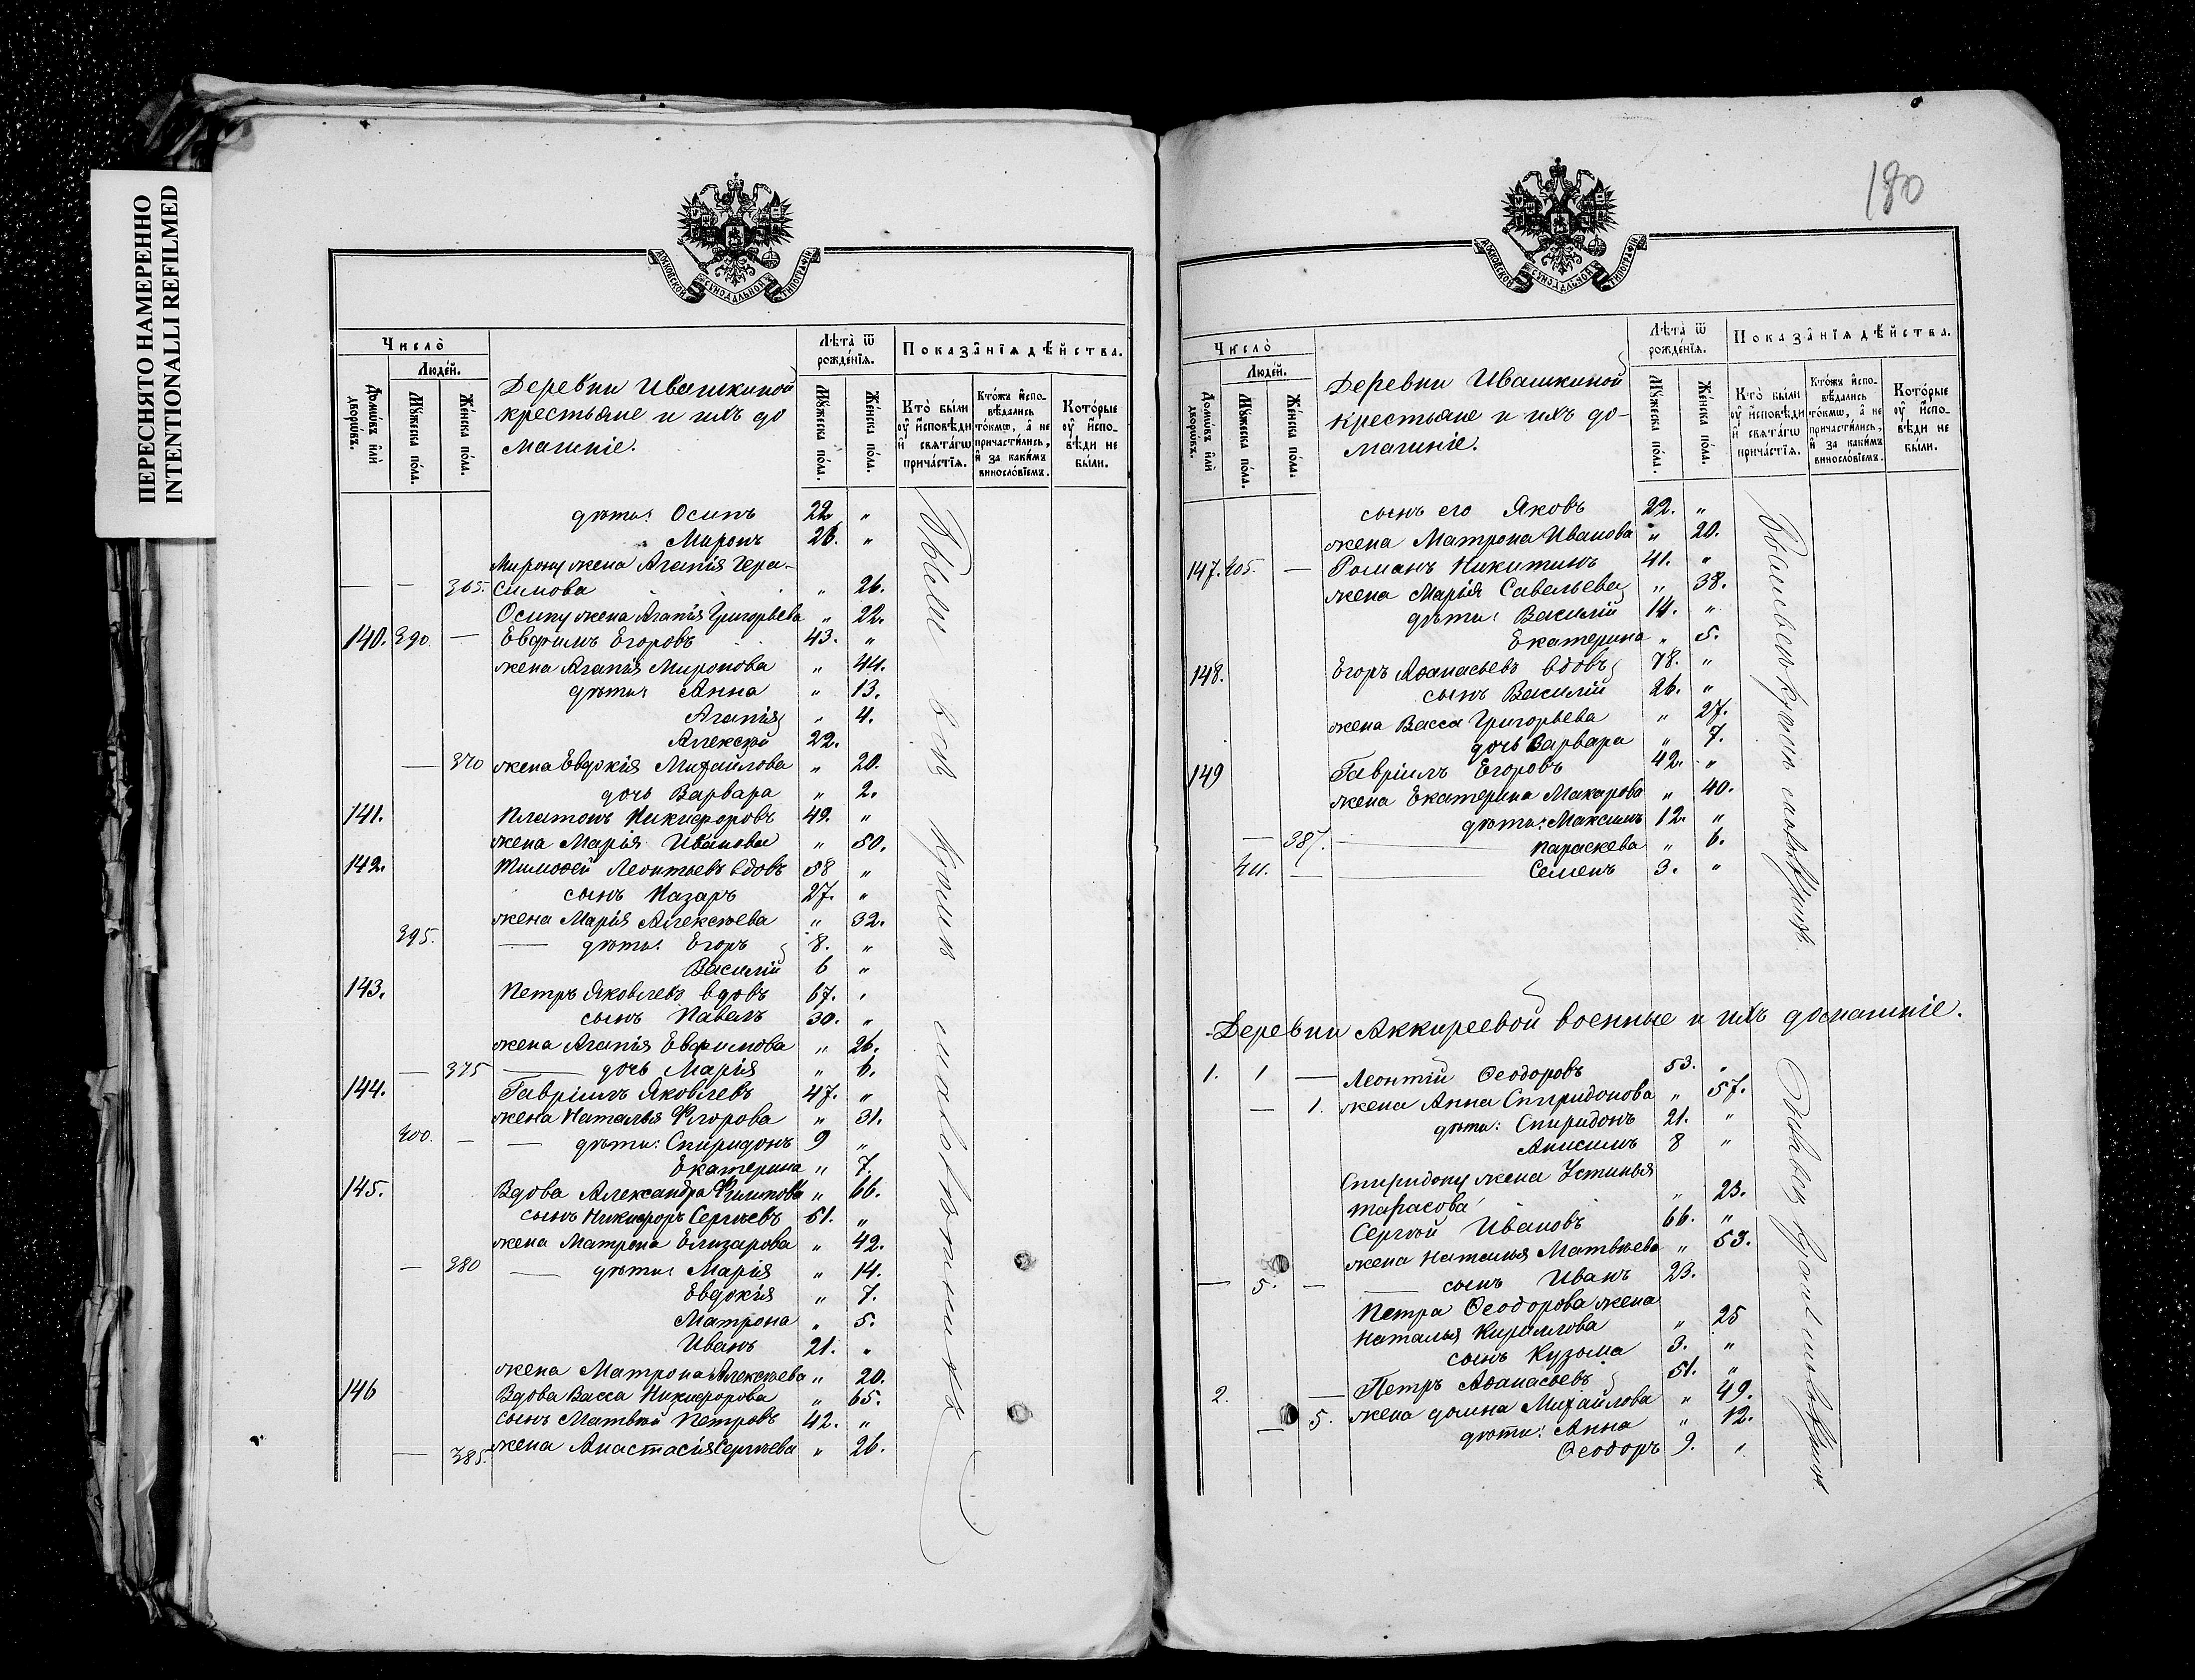 ПЕРЕСНЯТО НАМЕРЕННО
INTENTIONALLI REFILMED
МОСКОВСКОЙ СѴНОДАЛЬНОЙ ТИПОГРАФІИ
Число̀
Люде́й.
Домѡ́въ и҆лѝ дворѡ́въ.
Мꙋ́жеска по́ла.
Же́нска по́ла.
Деревни Ивашкиной
крестьяне и ихъ до
машніе.
Лѣ́та ѿ рожде́нїѧ.
Мꙋ́жеска по́ла.
Же́нска по́ла.
Показа̂нїѧ дѣ́йства.
Кто̀ бы́ли оу҆ и҆сповѣ́ди и҆ свѧта́гѡ прича́стїѧ.
Кто́жъ и҆спо­вѣ́дались то́кмѡ, а҆ не причасти́лись, и҆ за каки́мъ виносло́вїемъ.
Кото́рые оу҆ и҆спо­вѣ́ди не бы́ли.
дѣти: Осипъ 22 „
Миронъ 26. „
Мирону жена Агапія Гера-
— — 365. симова „ 26.
Осипу жена Агапія Григорьева „ 22.
140. 390. — Евфимъ Егоровъ 43. „
жена Агапія Миронова „ 44.
дѣти: Анна „ 13.
Агапія „ 4.
Алексѣй 22.
— 370 жена Евдокія Михайлова „ 20.
дочь Варвара „ 2.
141. Платонъ Никифоровъ 49. „
жена Марія Иванова „ 50.
142. Тимоѳей Леонтьевъ вдовъ 58 „
сынъ Назаръ 27. „
жена Марія Алексѣева „ 32.
395. — дѣти: Егоръ 8. „
Василій 6 „
143. Петръ Яковлевъ вдовъ 67. „
сынъ Павелъ 30. „
жена Агапія Евфимова „ 26.
— 375 — дочь Марія „ 6.
144. Гавріилъ Яковлевъ 47. „
жена Наталья Флорова „ 31.
400. — — дѣти: Спиридонъ 9 „
Екатерина „ 7.
145. Вдова Александра Филипова „ 66.
сынъ Никифоръ Сергѣевъ 51. „
жена Матрона Елизарова „ 42.
— 380 — дѣти: Марія „ 14.
Евдокія „ 7.
Матрона „ 5.
Иванъ 21. „
жена Матрона Алексѣева „ 20.
146 Вдова Васса Никифорова „ 65.
сынъ Матвѣй Петровъ 42. „
— 385. жена Анастасія Сергѣева „ 26.
180
МОСКОВСКОЙ СѴНОДАЛЬНОЙ ТИПОГРАФІИ
Число̀
Люде́й.
Домѡ́въ и҆лѝ дворѡ́въ.
Мꙋ́жеска по́ла.
Же́нска по́ла.
Деревни Ивашкиной
крестьяне и ихъ до-
машніе.
Лѣ́та ѿ рожде́нїѧ.
Мꙋ́жеска по́ла.
Же́нска по́ла.
Показа̂нїѧ дѣ́йства.
Кто̀ бы́ли оу҆ и҆сповѣ́ди и҆ свѧта́гѡ прича́стїѧ.
Кто́жъ и҆спо­вѣ́дались то́кмѡ, а҆ не причасти́лись, и҆ за каки́мъ виносло́вїемъ.
Кото́рые оу҆ и҆спо­вѣ́ди не бы́ли.
сынъ его Яковъ 22. „
жена Матрона Иванова „ 20.
147. 405. — Романъ Никитинъ 41. „
жена Марія Савельева „ 38.
дѣти: Василій 14. „
Екатерина „ 5.
148. Егоръ Аѳанасьевъ вдовъ 78. „
сынъ Василій 26. „
жена Васса Григорьева „ 27.
дочь Варвара „ 7.
149 Гавріилъ Егоровъ 42. „
жена Екатерина Макарова „ 40.
дѣти: Максимъ 12. „
— 387. — Параскева „ 6.
411. — — Семенъ 3. „
Деревни Аккиреевой военные и ихъ домашніе.
1. 1 — Леонтій Ѳеодоровъ 53. „
— 1. жена Анна Спиридонова „ 57.
дѣти: Спиридонъ 21. „
Анисимъ 8 „
Спиридону жена Устинья
Тарасова „ 23.
Сергѣй Ивановъ 66. „
жена Наталья Матвѣева „ 53.
— 5. — — сынъ Иванъ 23.
Петра Ѳеодорова жена
Наталья Кириллова „ 25
сынъ Кузьма 3. „
2. — Петръ Аѳанасьевъ 51. „
— 5. жена Домна Михайлова „ 49.
дѣти: Анна „ 12.
Ѳеодоръ 9. „